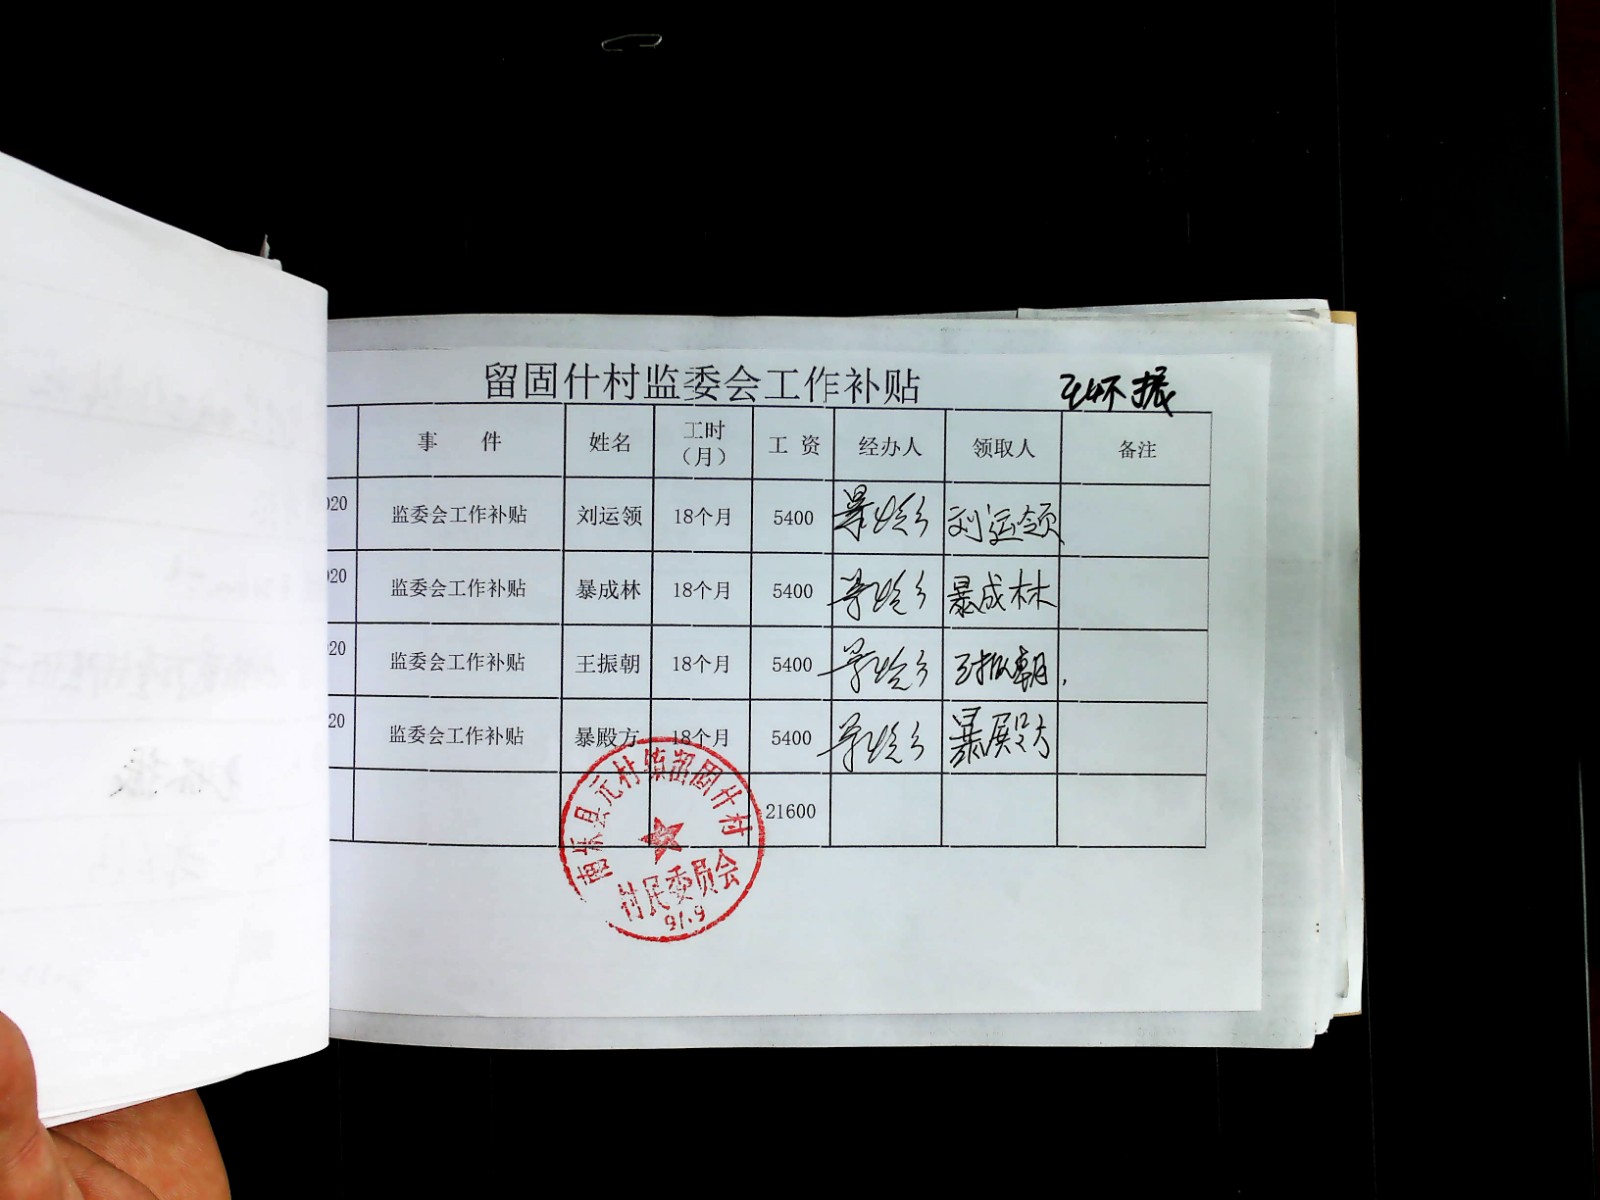 留固什村监委会工作补贴 王怀振
事 件 姓名 工时（月） 工 资 经办人 领取人 备注
020 监委会工作补贴 刘运领 18个月 5400 刘运领
020 监委会工作补贴 暴成林 18个月 5400 暴成林
020 监委会工作补贴 王振朝 18个月 5400 王振朝
20 监委会工作补贴 暴殿方 18个月 5400 暴殿方
21600
南乐县元村镇留固什村
村民委员会
91.9